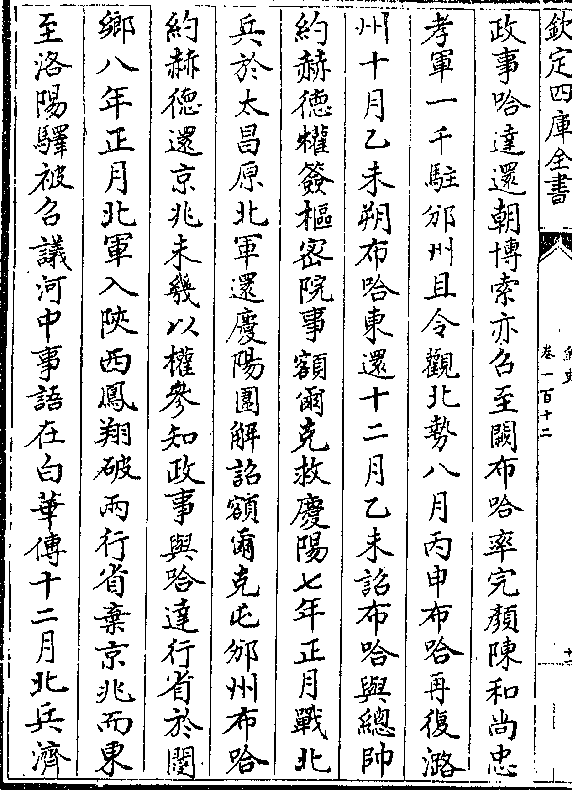 欽定四庫全書
卷一百十二
政事哈達還朝博索亦召至闕布哈率完顏陳和尚忠
孝軍一千駐邠州且令觀北勢八月丙申布哈再復潞
州十月乙未朔布哈東還十二月乙未詔布哈與總帥
約赫德權簽樞密院事額爾克救慶陽七年正月戰北
兵於太昌原北軍還慶陽圍解詔額爾克屯邠州布哈
約赫德還京兆未幾以權參知政事與哈達行省於閿
鄉八年正月北軍入陝西鳳翔破兩行省棄京兆而東
至洛陽驛被召議河中事語在白華傳十二月北兵濟